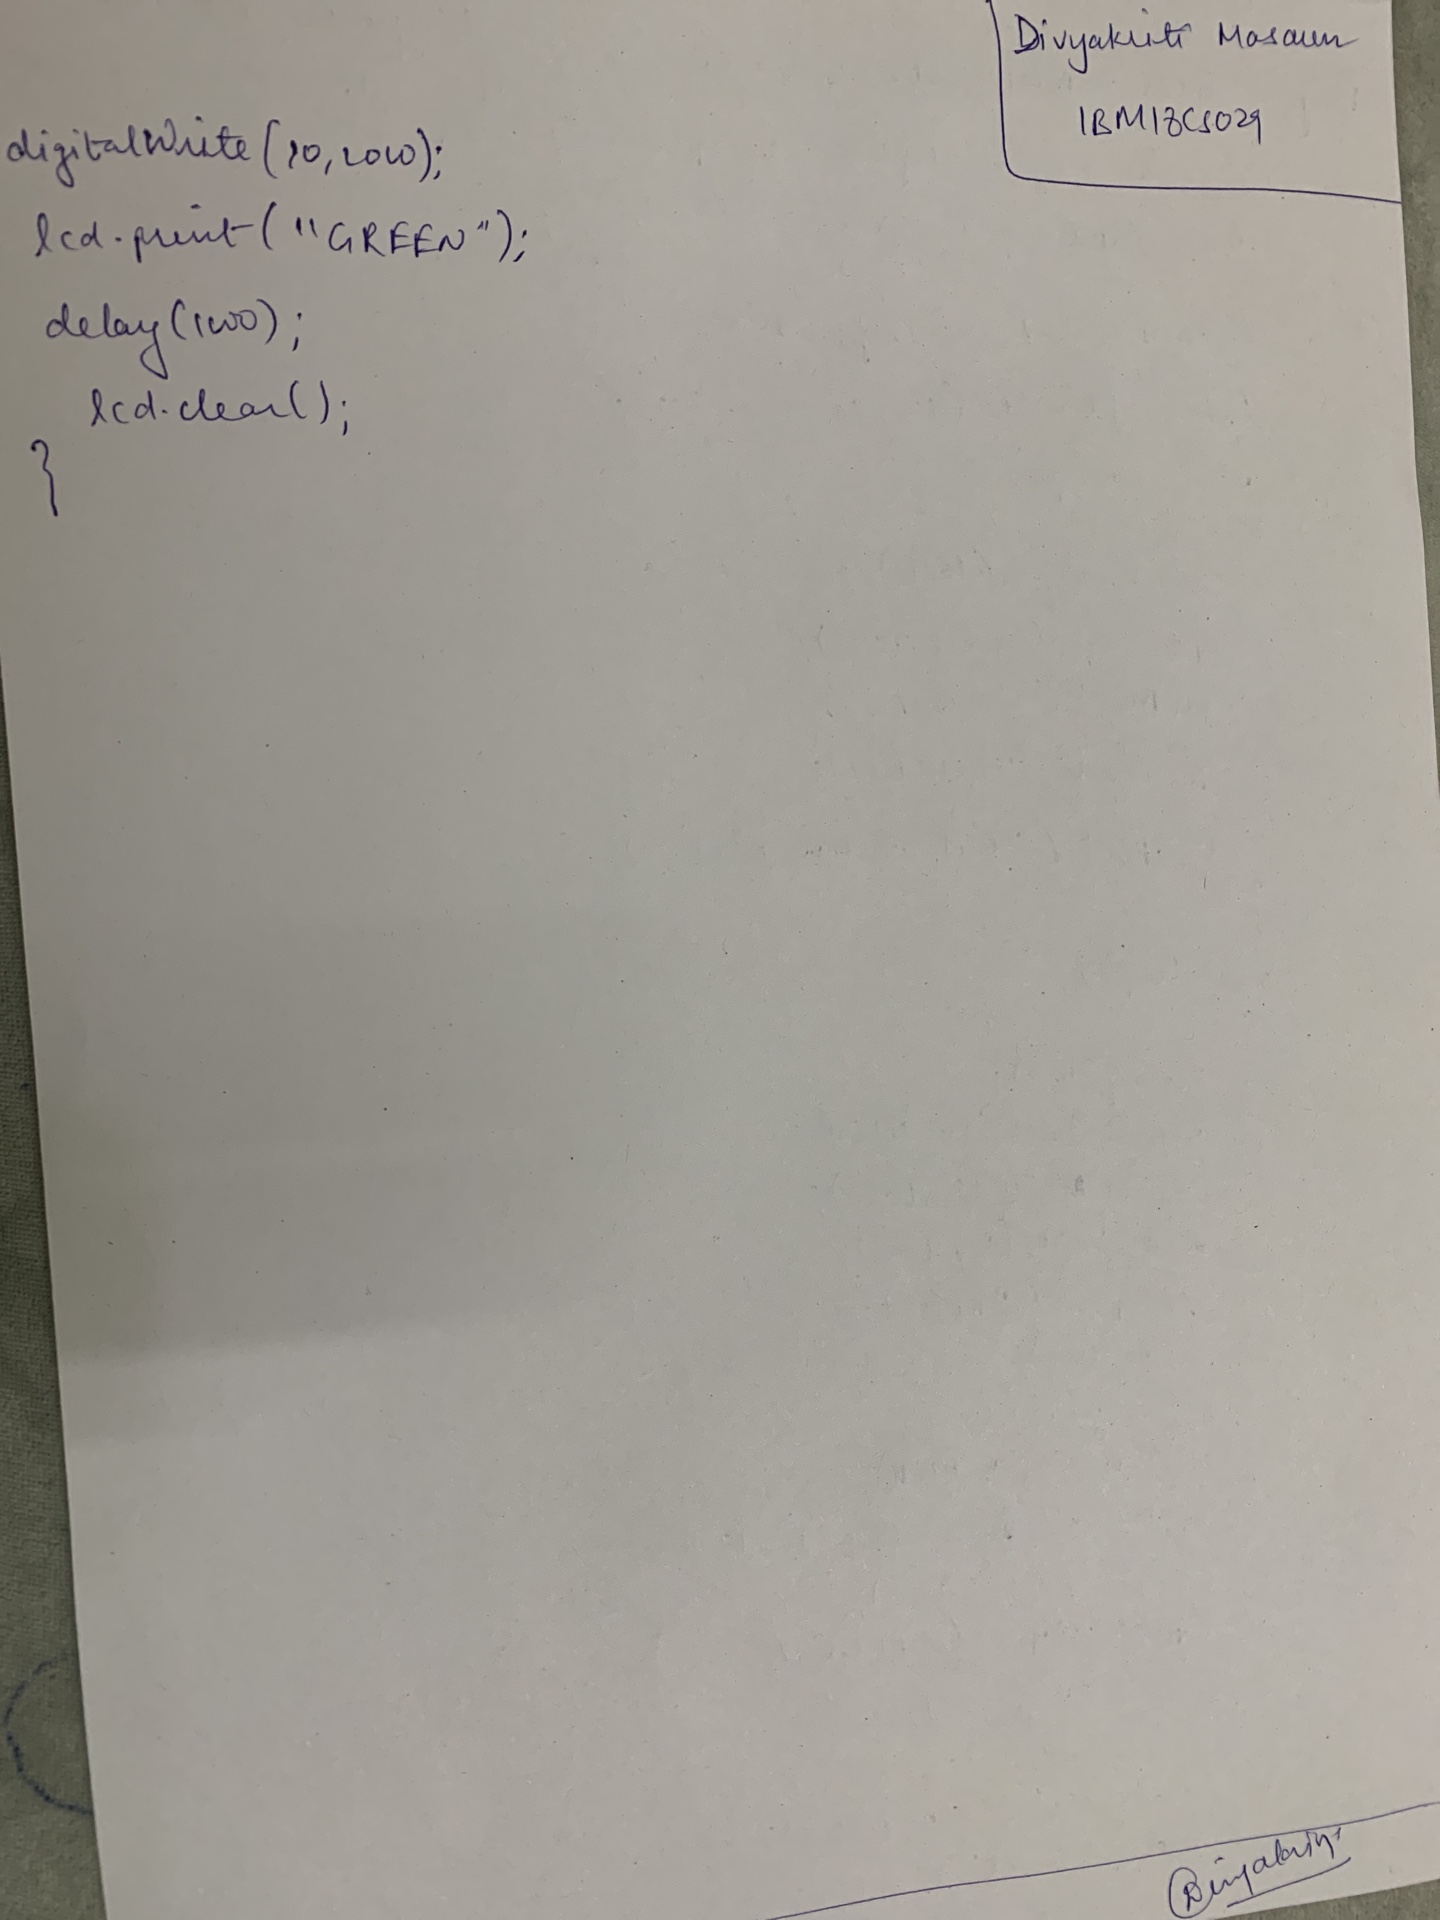 Divyakriti Masaun
1BM18CS029
digitalWrite(10,LOW);
lcd.print("GREEN");
delay(1000);
lcd.clear();
}